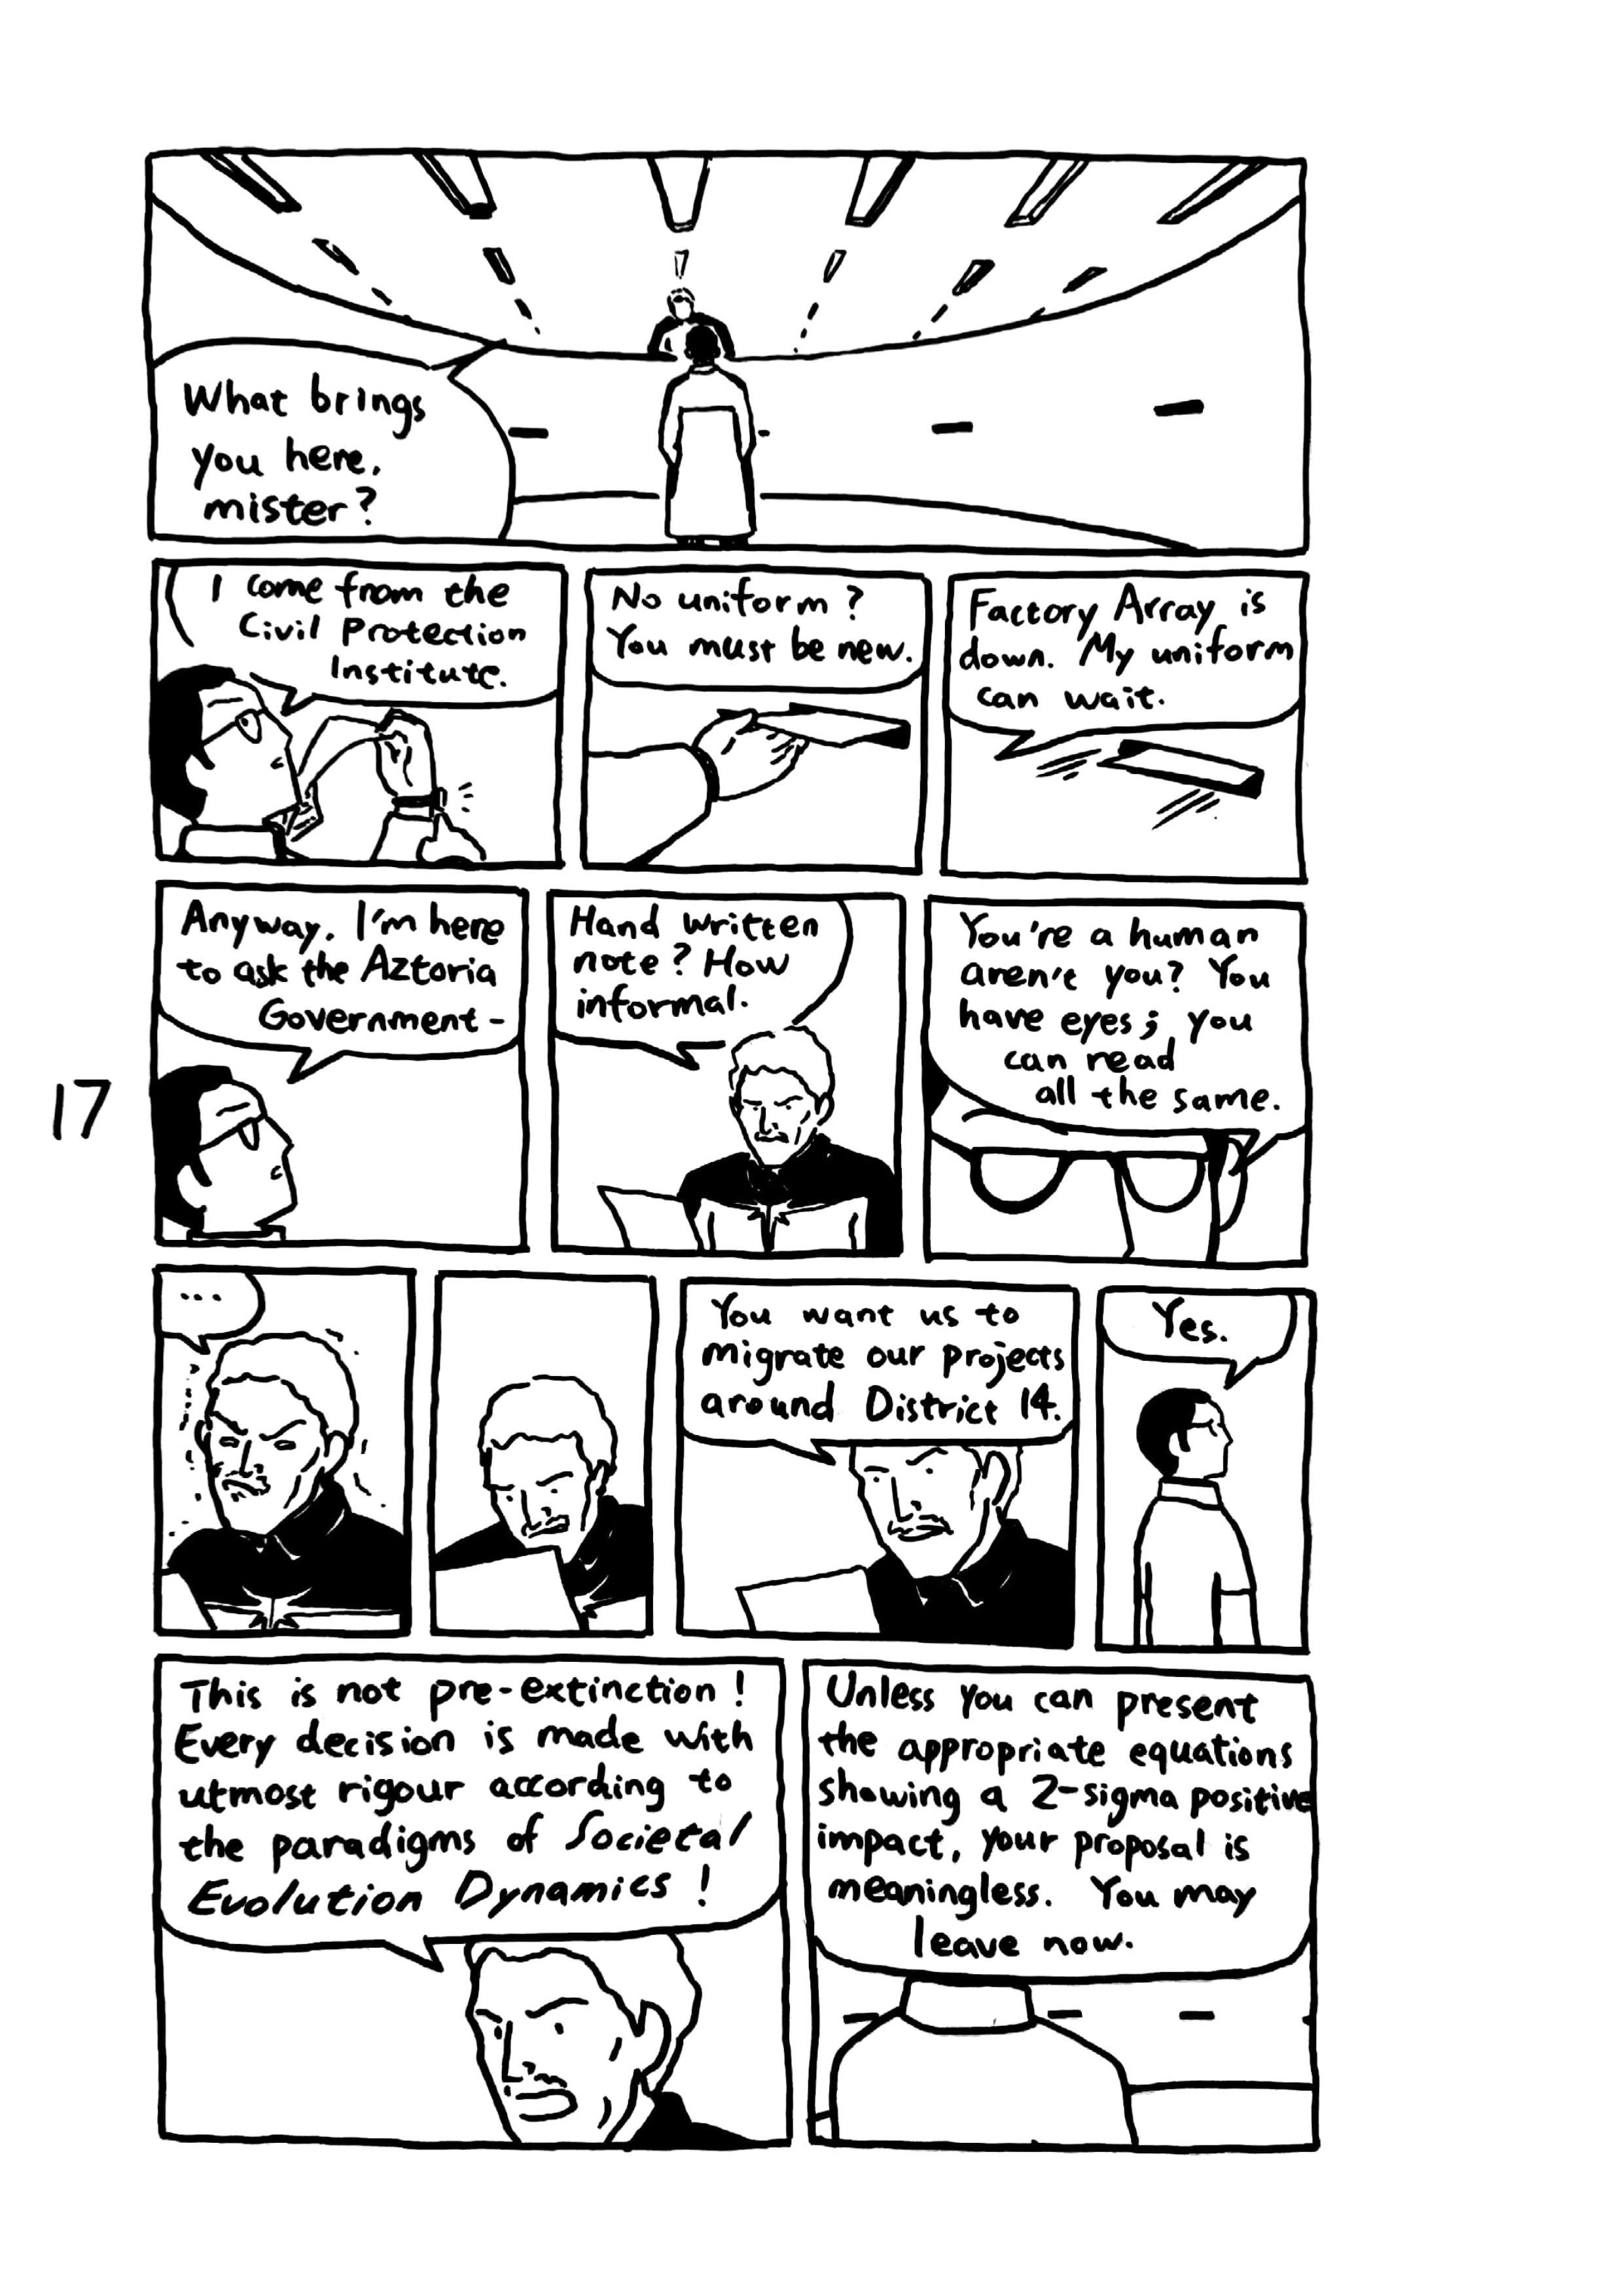 What brings
you here,
mister?
I come from the
Civil Protection
Institute.
No uniform?
You must be new.
Factory Array is
down. My uniform
can wait.
Anyway, I'm here
to ask the Aztoria
Government-
Hand written
note? How
informal.
You're a human
aren't you? You
have eyes; you
can read
all the same.
17
...
You want us to
migrate our projects
around District 14.
Yes.
This is not pre-extinction!
Every decision is made with
utmost rigour according to
the paradigms of Societal
Evolution Dynamics!
Unless you can present
the appropriate equations
showing a 2-sigma positive
impact, your proposal is
meaningless. You may
leave now.